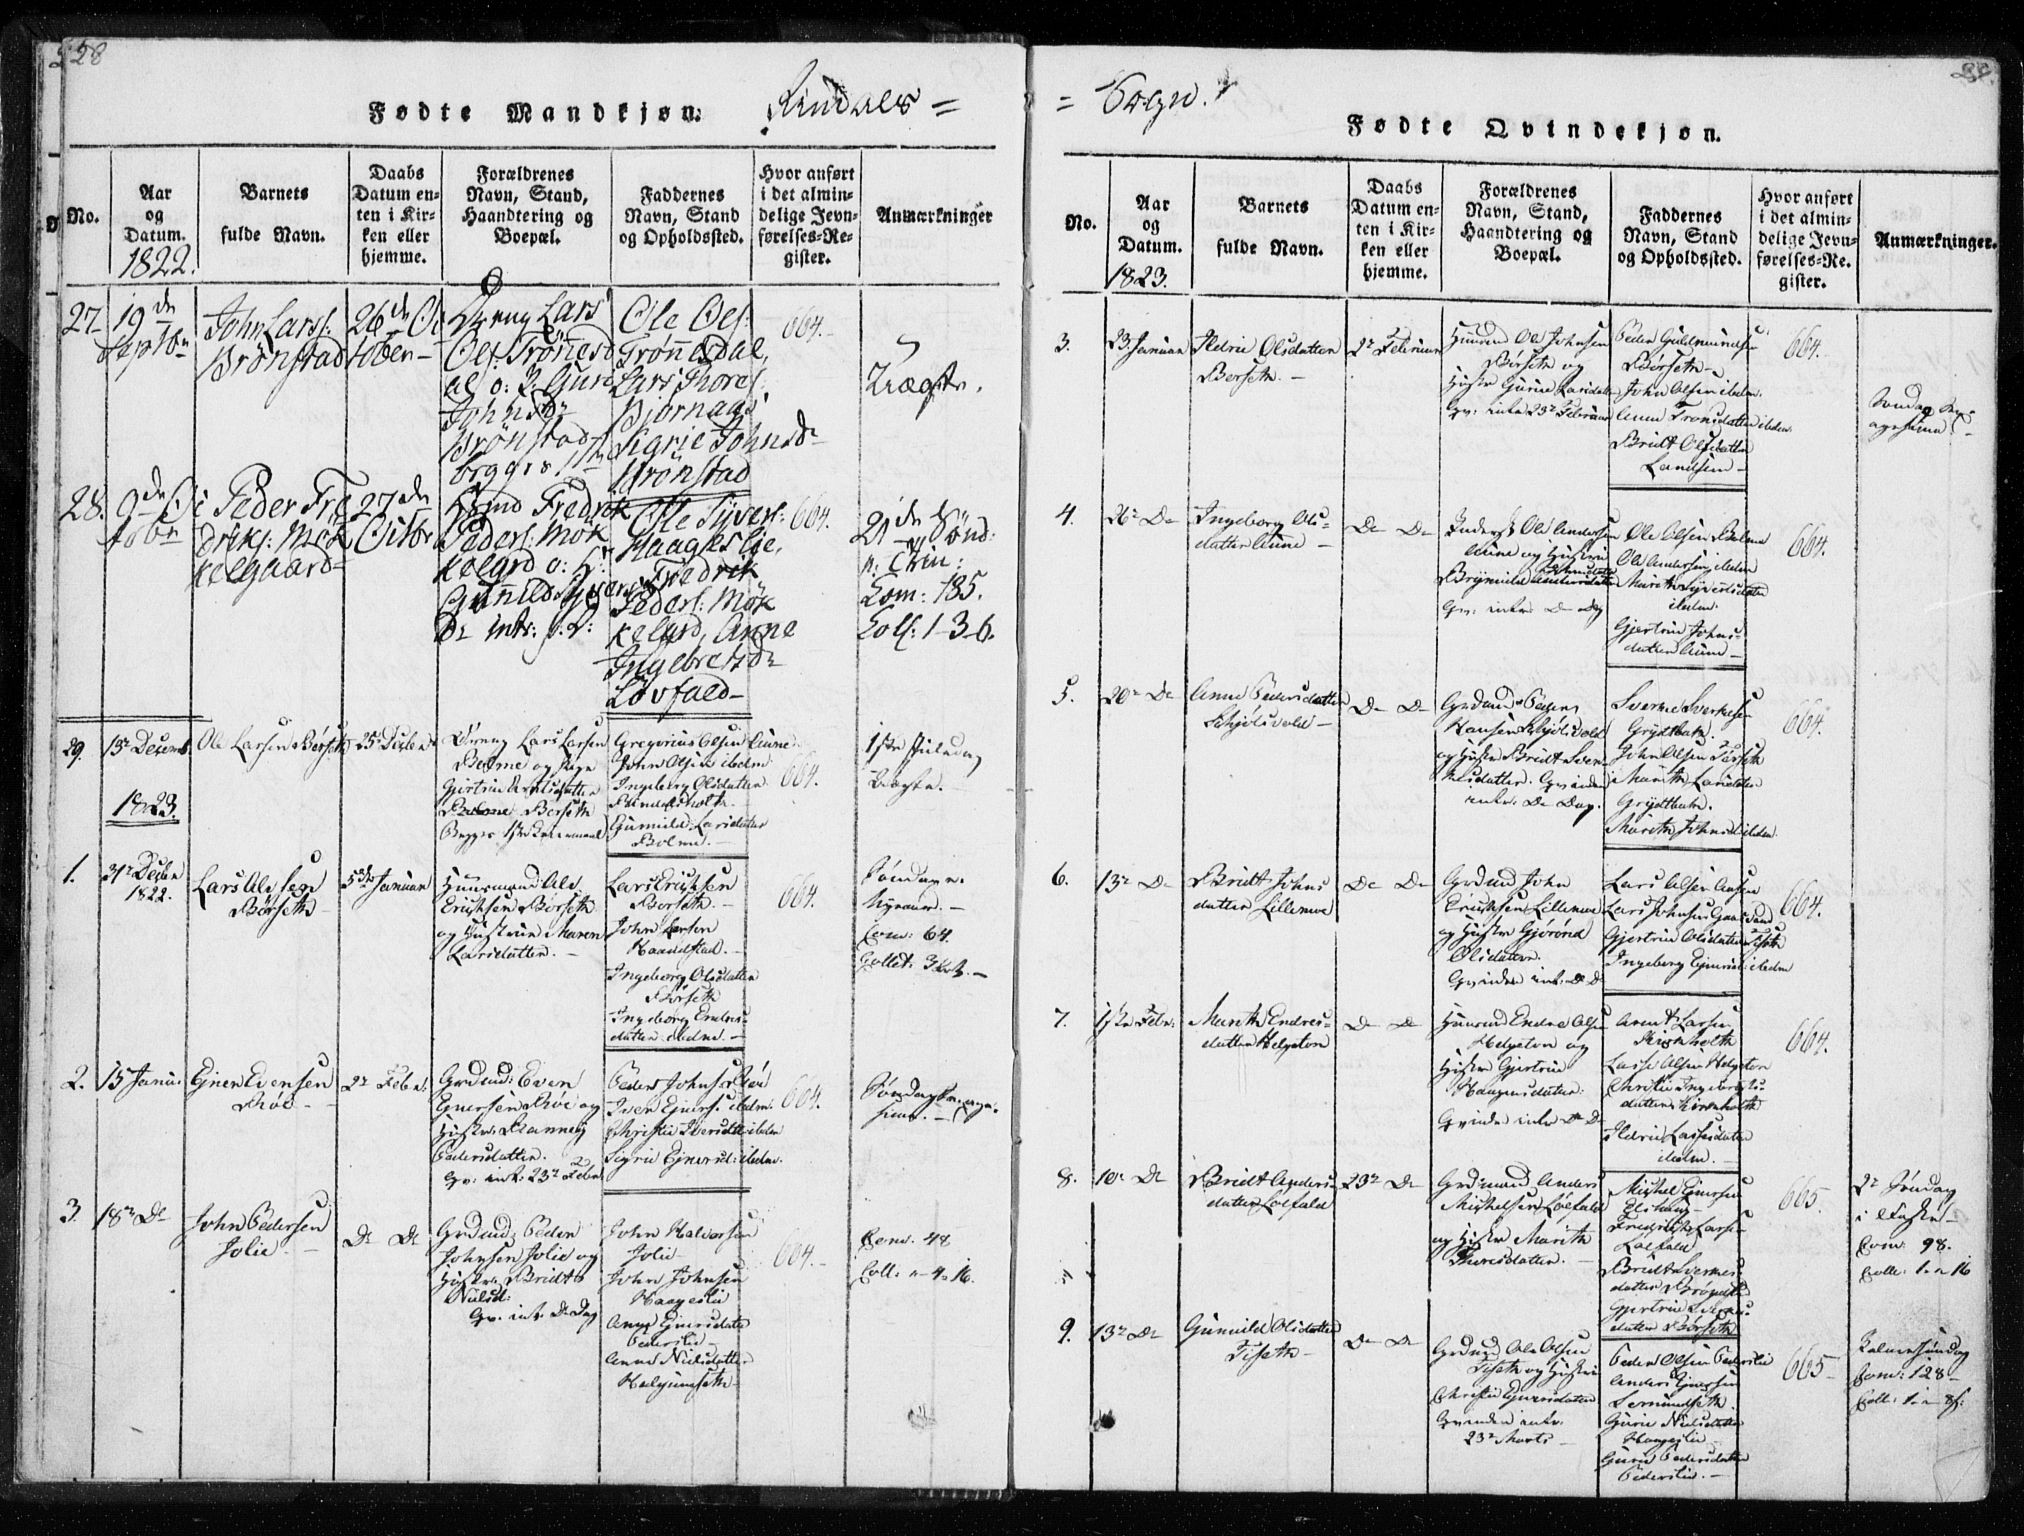 228
Fødte Mandkjøn.
Rindals =
No.
Aar
og
Datum.
1822.
Barnets
fulde Navn.
Daabs
Datum en-
ten i Kir-
ken eller
hjemme.
Forældrenes
Navn, Stand,
Haandtering og
Boepæl.
Faddernes
Navn, Stand
og Opholdssted.
Hvor anført
i det almin-
delige Jevn-
førelses-Re-
gister.
Anmærkninger
27
19de
Septbr
John Larss:
Brønstad
26de Oc
tober
Dreng Lars
Ols: Trønnesd
al o: P. Guri
Johnsdr
Brønstad
begges 1te
Ole Ols:
Trønnesdal,
Lars Thores:
Bjørnaas
Sigrie Johnsdr
Brønstad
664.
Uægte.
28.
9de Oc
tobr
Peder Fre
driks: Møk
kelgaard
27de
Octbr
Hmd Fredrik
Peders: Møk
kelgrd o: H:
Gunild Syvers
Dr intr: s: D:
Ole Syvers:
Haageslie,
Fredrik
Peders: Møk
kelgrd, Anne
Ingebretsdr
Løvfald
664.
21de Sønd:
p: Trin:
Com: 185.
Coll: 1-3-6.
29.
15de Decemb
Ole Larsen Børseth
25de Decbr
Dreng Lars Larsen
Bolme og Pige
Gjertrud Arntsdatter
Børseth
Begges 1ste Leiermaal
Gregorius Olsen Aune
John Olsen ibdm
Ingeborg Olsdatter
Gunnild Larsdatter
Bolme.
664.
1ste Juledag
Uægte.
1823.
1.
31te Decbr
1822.
Lars Ols sen
Børseth
5te Januar
Huusmand Ole
Erichsen Børseth
og Hustrue Maren
Larsdatter.
Lars Erichsen
Børseth.
John Larsen
Haandstad.
Ingeborg Olsdatter
Børseth
Ingeborg Endres-
datter ibdm.
664.
Søndagen
Nyeaar.
Com: 64.
2.
15 Janu:
Ejner Evensen
Bøe
2de Febr:
Grdmd: Even
Ejnersen Bøe og
Hustr: Rannei
Pedersdatter.
Qv: intr: 23de Febr
Peder Johnsen Bøe
Iver Ejners: ibdm:
Christie Iversdtr ibdm
Sigrie Ejnersd: ibdm.
664.
3.
18de Do
John Pedersen
Jolie.
Do Do
Grdmd: Peder
Johnsen Jolie og
Hustr: Bridt
Nielsd:
Qv: intr. Do Dag
John Halvorsen
Jolie
John Johnsen
Haageslie
Anne Ejnersdatter
Pederslie
Anne Nielsdatter
664.
Com. 48
Coll: - 4- 16.
= Sogn.
Fødte Qvindekjøn.
No.
Aar
og
Datum.
1823.
Barnets
fulde Navn.
Daabs
Datum en-
ten i Kir-
ken eller
hjemme.
Forældrenes
Navn, Stand,
Haandtering og
Boepæl.
Faddernes
Navn, Stand
og Opholdssted.
Hvor anført
i det almin-
delige Jevn-
førelses-Re-
gister.
Anmærkninger.
3.
Januar
Ildrie Olsdatter
Børseth.
2de Februar
Huusmd Ole Johnsen
Børseth og
Hustr Gurie Larsdatter
Qv: intr 23de Februar
Peder Guldmundsen
Børseth
John Olsen ibdm.
Anne Tronsdatter ibdm.
Bridt Olsdatter
Landsem
664.
4.
26de Do
Ingeborg Ols-
datter Aune
Do Do
Inderst Ole Andersen
Aune og Hustrue
Brynnild
Qv: intr. Do Dag
Ole Olsen Bolme
Ole Andersen ibdm
Marith Syversdatter
ibdm.
Gjertrue Johns-
datter Aune
664.
5.
20de Do
Anne Pedersdatter
Skjølsvold
Do Do
Grdmd Peder
Hansen Skjølsvold
og Hustr Bridt Sver-
kesdatter. Qvinden
intr. Do Dag.
Sverke Sverkesen
Grytbak.
John Olsen Tiseth
Marith Larsdatter
Grytbak.
Marith Johnsd: ibdm.
664.
6.
13de Do
Bridt Johns
datter Lillemoe
Do Do
Grdmd John
Erichsen Lillemoe
og Hustr Gjørond
Olsdatter.
Qvinden intr. Do D
Lars Johnsen
Gjertrue Olsdatter Tiseth
Ingeborg ibdm
664.
7.
1ste Febr.
Marith Endres-
datter Helgeton
Do Do
Huusmd Endre Olsen
Helgeton og
Hustr Gjertrue
Haagensdatter:
Qvinden intr Do D
Arnt Larsen
Kirkholth
Lasse Olsen Helgeton
Christie Ingebrigts-
datter Kirkholth
Ildrie Lassesdatter
ibdm.
664.
8.
10de Do
Bridt Anders-
datter Løefald
23de Do
Grdmand Anders
Michelsen Løefald
og Hustr Marith
Thoresdatter.
Michel Ejnersen
Fredrich Larsen
Løefald
Bridt Sverkes-
datter Brønstad
Gjertrue
datter Børseth
665.
2de Søndag
i Faste
Com: 98.
Coll: 1. - 16
9.
13de Do
Gunnild Olsdatter
Tiseth
Do Do
Grdmd Ole Olsen
Tiseth og Hustrue
Christie Ejnersdatter
Qvinden intr.
23de Marts
Peder Olsen Pederslie
Anders Ejnersen
Gurie Nielsdatter
Haageslie
Gurie Pedersdatter
Pederslie.
665
Palmesøndag
Com: 128
Coll: 1. - 8s: